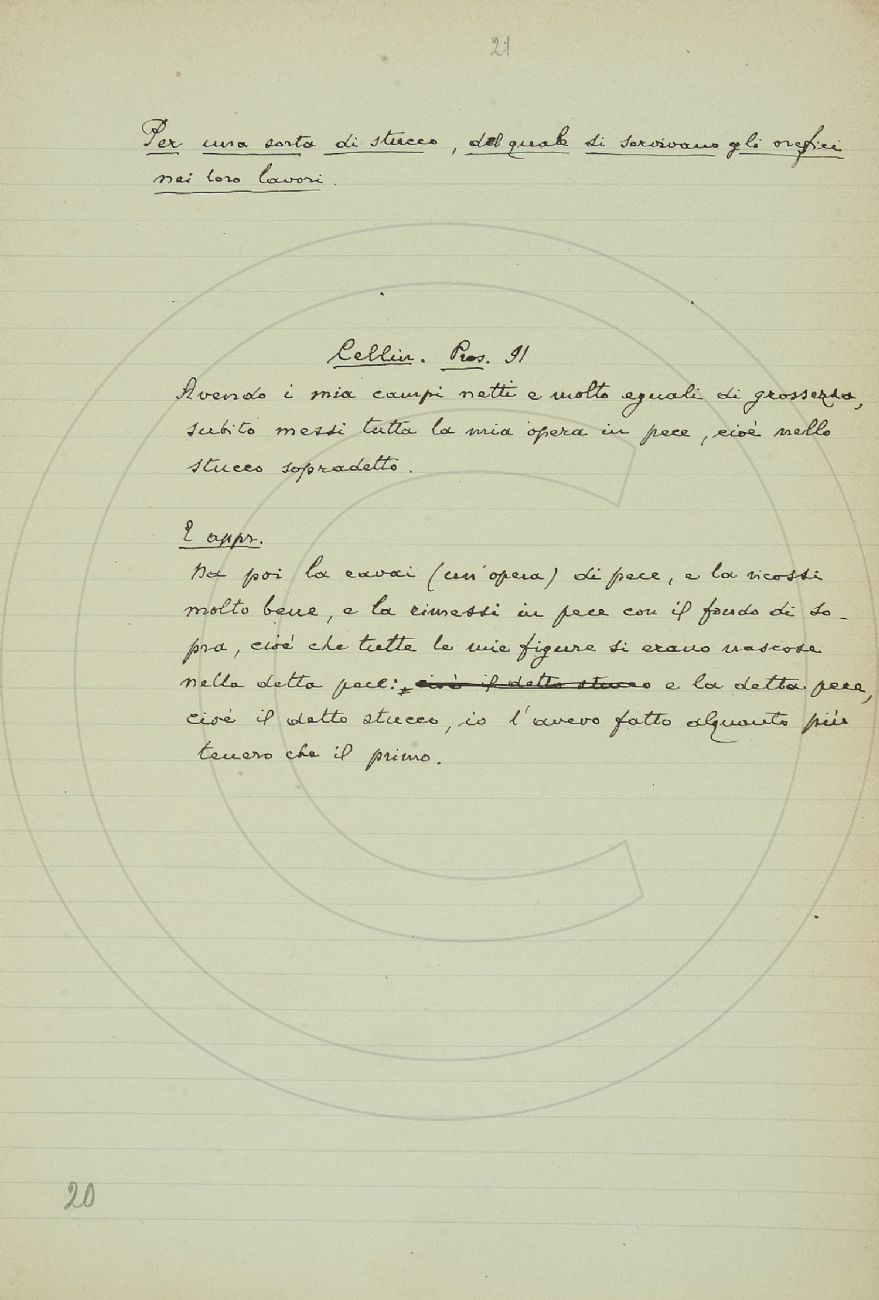 21
Per una sorta di stucco, del quale si servivano gli orefici
nei loro lavori.
Cellin. Pros. 91
Avendo i mia campi netti e molto eguali di grossezza,
subito messi tutta la mia opera in pece, cioè nello
stucco sopradetto.
E appr.
Da poi la cavai (un'opera) di pece, e la ricossi
molto bene, e la rimessi in pece con il fondo di so-
pra, cioè che tutte le mie figure si erano nascose
nella detta pece: cioè il detto stucco e la detta pece,
cioè il detto stucco, io l'avevo fatto alquanto più
tenero che il primo.
20